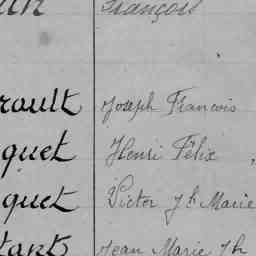 François
rault Joseph Francois
quet Henri Félix
quet Victor Jh Marie
tant Jean Marie Jh